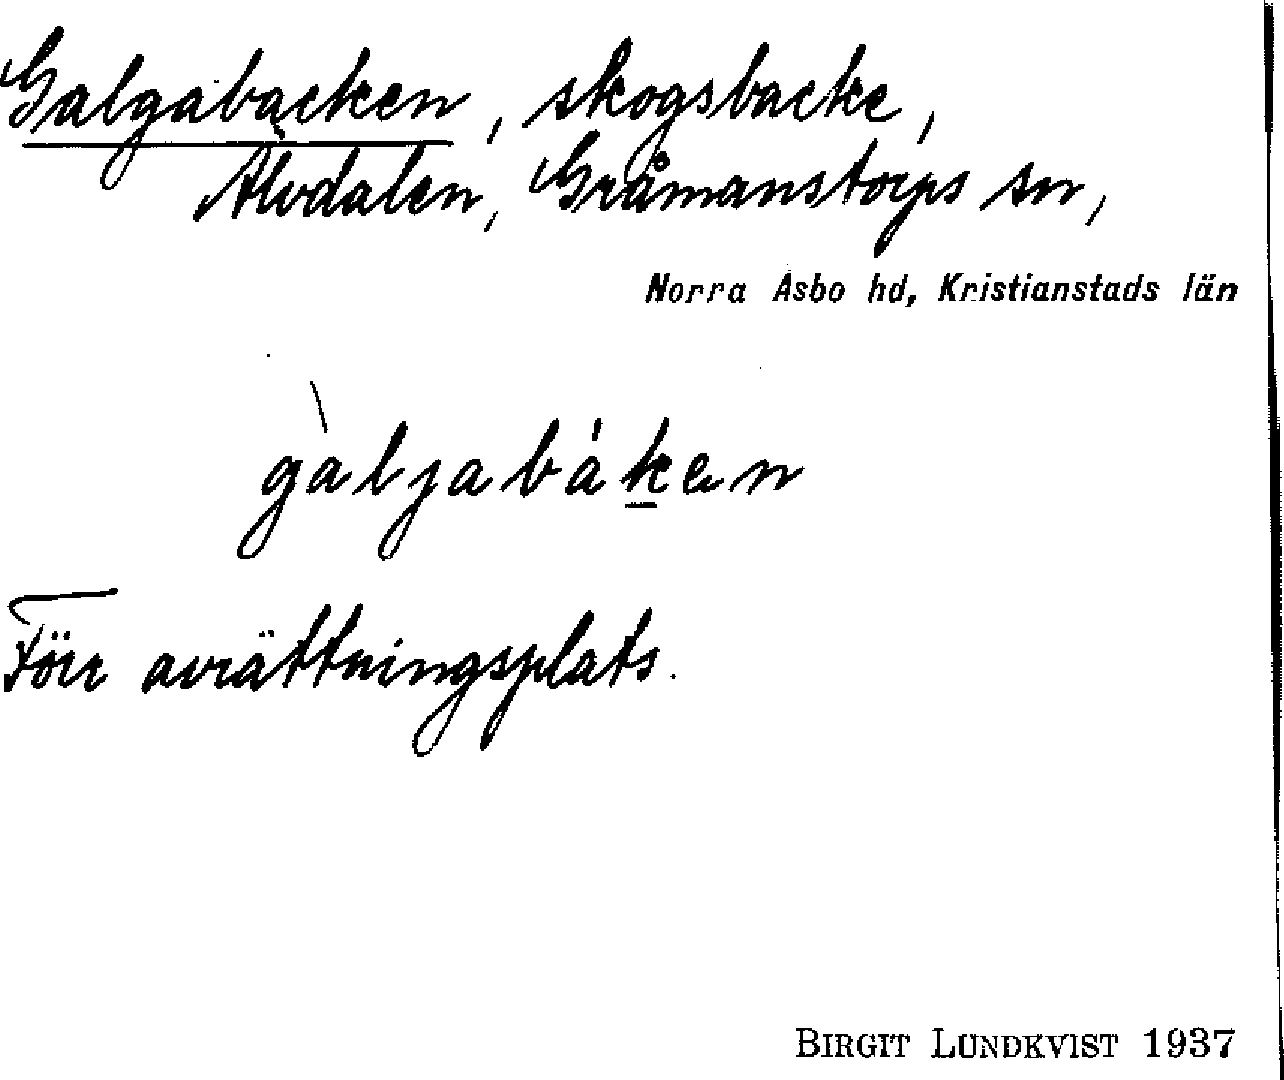 Galgabacken, skogsbacke,
Alvdalen, Gråmanstorps sn,
Norra Åsbo hd, Kristianstads län
gàljabáken
Förr avrättningsplats.
BIRGIT LUNDKVIST 1937